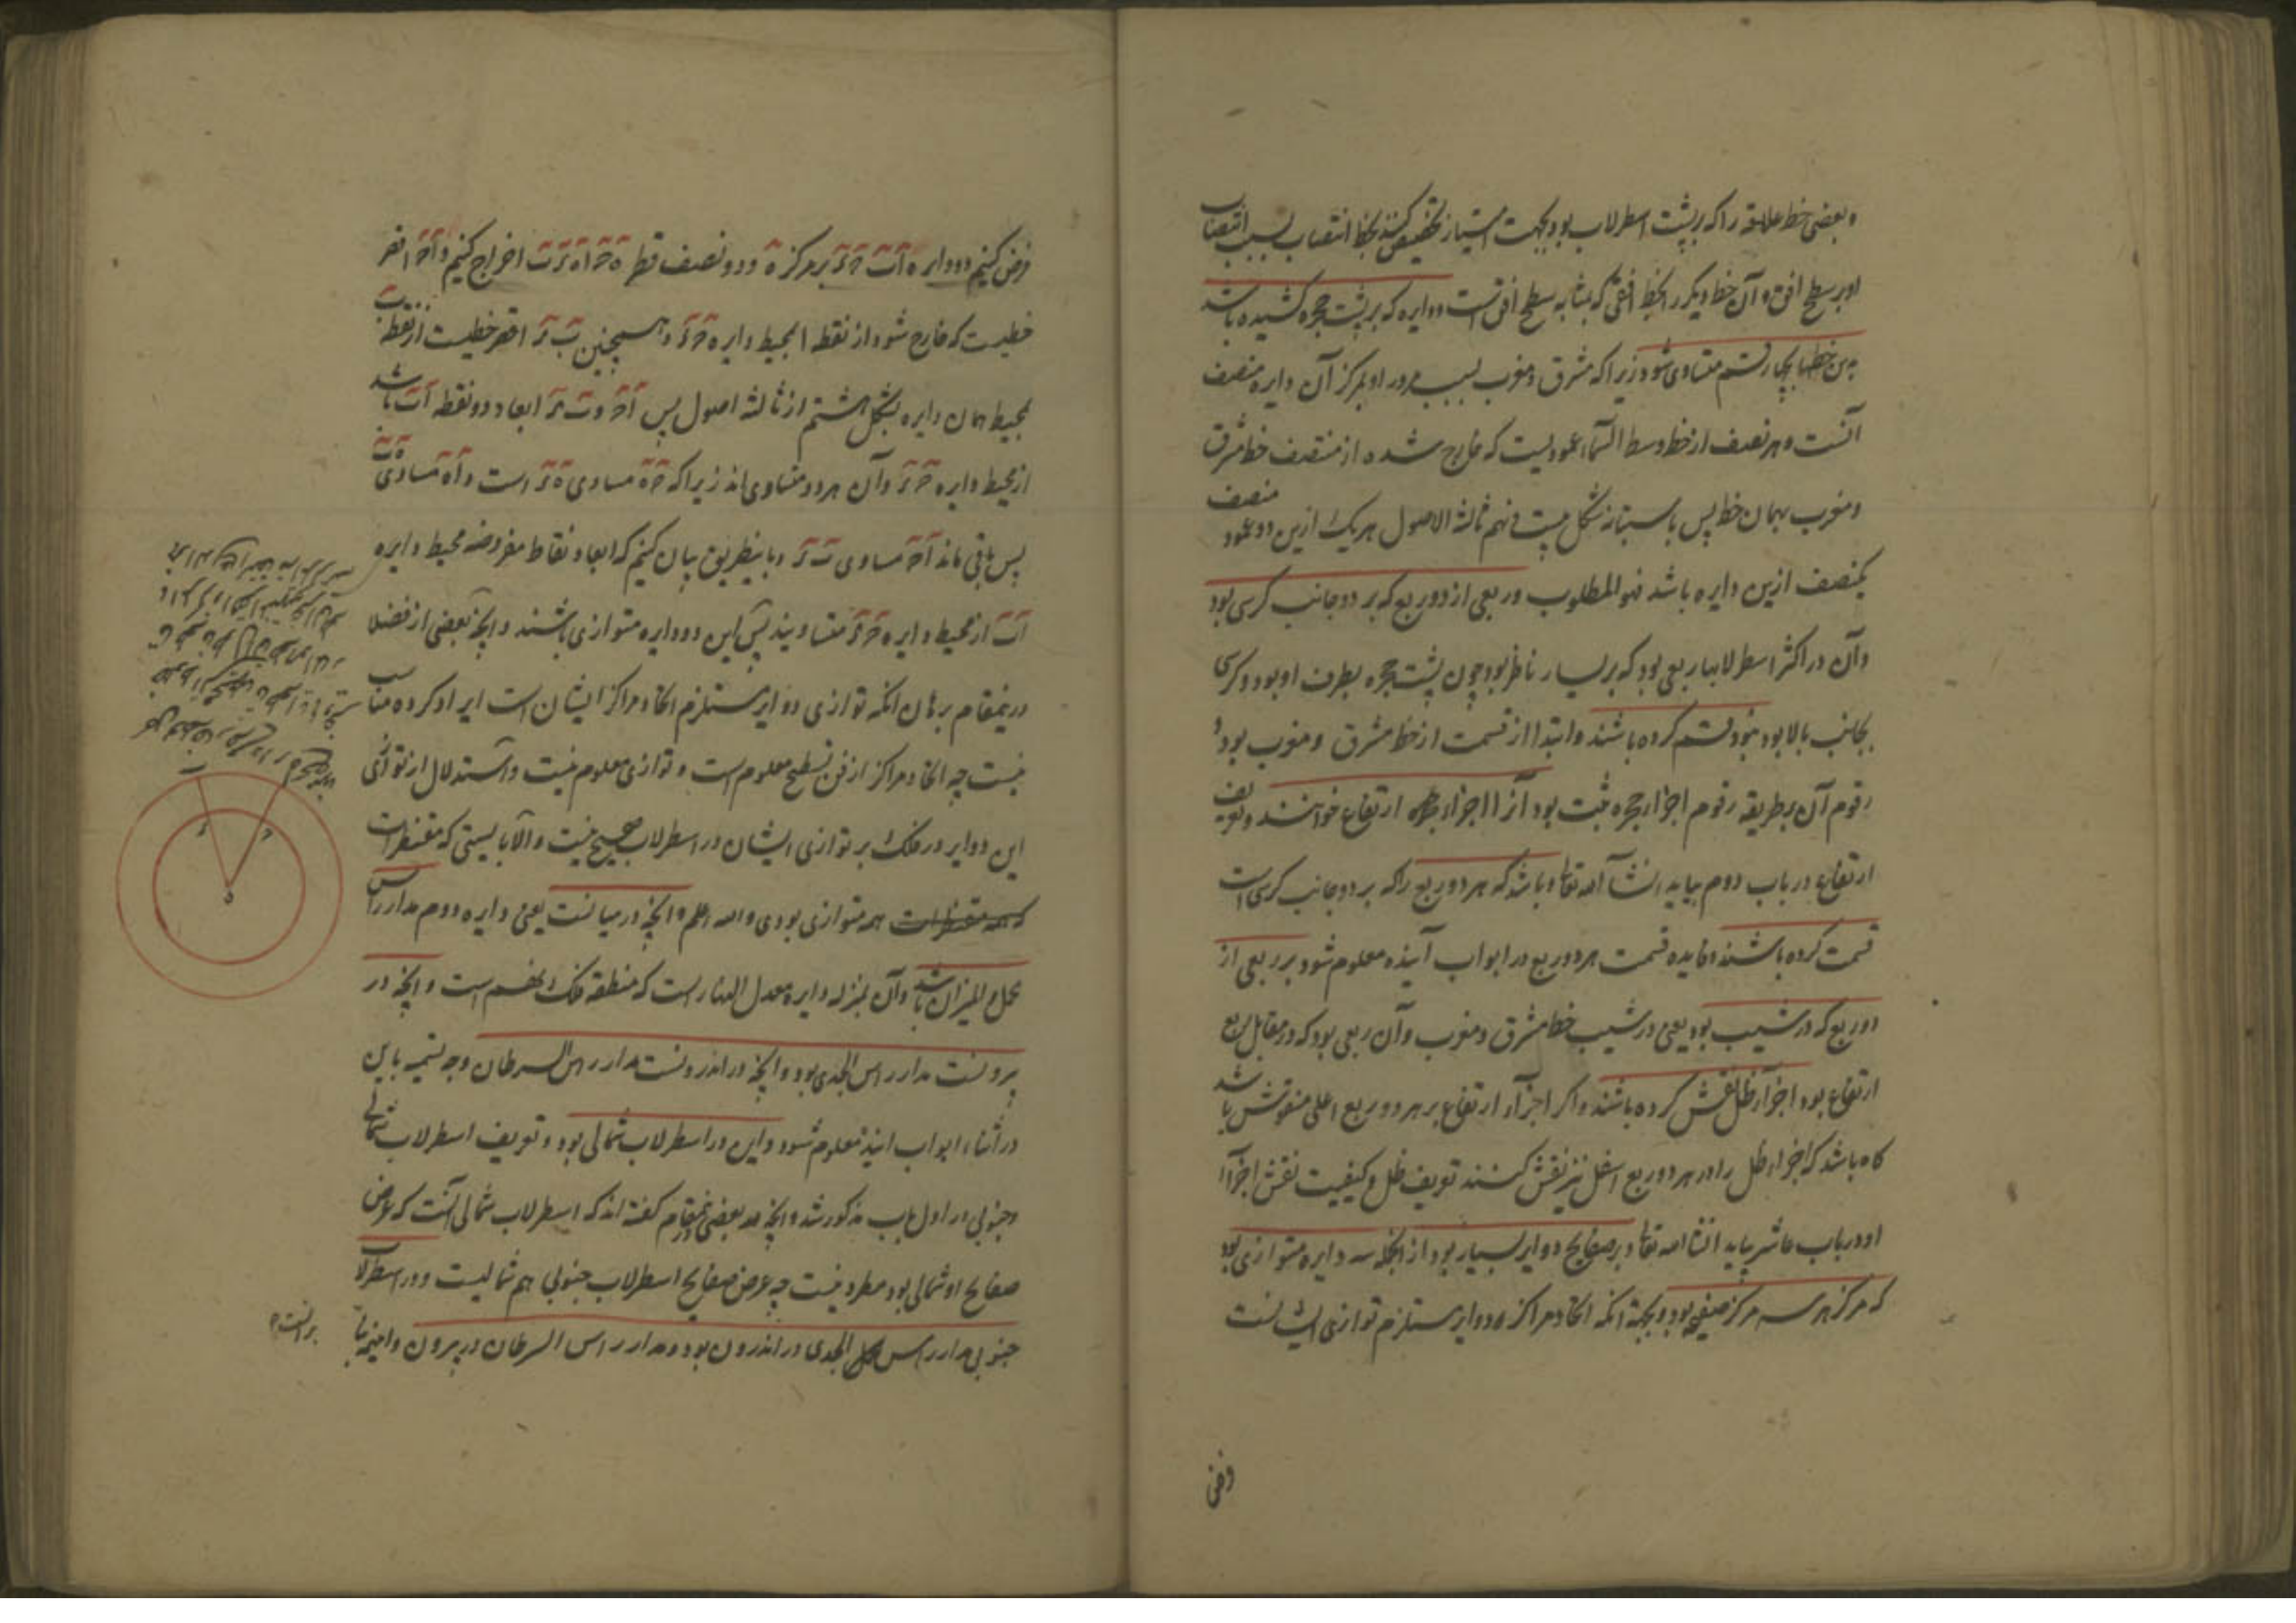 و بعضی خط علاقه را که بر پشت اسطرلاب بود بجهت امتیاز تخصیص کنند بخط انتصاب بسبب انتصاب
او بر سطح افق و آن خط دیگر را بخط افقی که بمثابه سطح افق است و دایره که بر پشت حجره کشیده باشد
باین خطها بچهار قسم متساوی شود زیرا که مشرق و مغرب بسبب مرور او بمرکز آن دایره منصف
آنست و هر نصف از خط وسط السماء عمودیست که خارج شده از منتصف خط مشرق
و مغرب بهمان خط پس باستبانه شکل بیست و نهم ثالثة الاصول هر یک ازین دو عمود منصف
یکنصف ازین دایره باشد فهو المطلوب و ربعی از دو ربع که بر دو جانب کرسی بود
و آن در اکثر اسطرلابها ربعی بود که بر یسار ناظر بود چون پشت حجره بطرف او بود و کرسی
بجانب بالا بود بنود قسم کرده باشند و ابتدا از قسمت از خط مشرق و مغرب بود و
رقوم آن بطریقه رقوم اجزاء حجره مثبت بود آنرا اجزاء ارتفاع خوانند و تعریف
ارتفاع در باب دوم بیاید انشا الله تعالی و باشد که هر دو ربع را که بر دو جانب کرسی است
قسمت کرده باشند و فایده قسمت هر دو ربع در ابواب آینده معلوم شود بر ربعی از
دو ربع که در شیب بود یعنی در شیب خط مشرق و مغرب و آن ربعی بود که در مقابل ربع
ارتفاع بود اجزاء ظل نقش کرده باشند و اگر اجزاء ارتفاع بر هر دو ربع اعلی منقوش باشد
گاه باشد که اجزاء ظل را در هر دو ربع اسفل نیز نقش کنند تعریف ظل و کیفیت نقش اجزاء
او در باب عاشر بیاید انشا الله تعالی و بر صفایح دوایر بسیار بود از آنجمله سه دایره متوازی بود
که مرکز هر سه مرکز صفیحه بود و بجهة آنکه اتحاد مراکز دوایر مستلزم توازی ایشانست
وفی
فرض کنیم دو دایره اب حر بر مرکز ه و دو نصف قطر ه ح ا ه ر ب اخراج کنیم و اح اقصر
خطیست که خارج شود از نقطه ا بمحیط دایره ح ر و همچنین ب ر اقصر خطیست از نقطه ب
بمحیط همان دایره بشکل هشتم از ثالثه اصول پس اح و ب ر ابعاد دو نقطه اب باشد
از محیط دایره ح ر و آن هر دو متساوی اند زیرا که ح ه مساوی ه ر است و ا ه مساوی ه ب
پس باقی ماند اح مساوی ب ر و باینطریق بیان کنیم که ابعاد نقاط مفروضه محیط دایره
اب از محیط دایره ح ر متساویند پس این دو دایره متوازی باشند و آنچه بعضی از فضلا
درینمقام برهان آنکه توازی دوایر مستلزم اتحاد مراکز ایشان است ایراد کرده مناسب
نیست چه اتحاد مراکز از فن تسطیح معلوم است و توازی معلوم نیست و استدلال از توازی
این دوایر در فلک بر توازی ایشان در اسطرلاب صحیح نیست و الا بایستی که مقنطرات
که همه مقنطرات همه متوازی بودی والله اعلم و آنچه در میانست یعنی دایره دوم مدار راس
الحمل و المیزان باشد و آن بمنزله دایره معدل النهار است که منطقه فلک نهم است و آنچه در
بیرونست مدار راس الجدی بود و آنچه در اندرونست مدار راس السرطان وجه تسمیه باین
در اثناء ابواب اینده معلوم شود و این در اسطرلاب شمالی بود و تعریف اسطرلاب شمالی
و جنوبی در اول باب مذکور شد و آنچه بعضی درینمقام گفته اند که اسطرلاب شمالی آنست که عرض
صفایح او شمالی بود مطرد نیست چه عرض صفایح اسطرلاب جنوبی هم شمالیست و در اسطرلاب
جنوبی مدار راس الجدی در اندرون بود و مدار راس السرطان در بیرون و اینها بنا
بر آنست
ب
ر
ح
ه